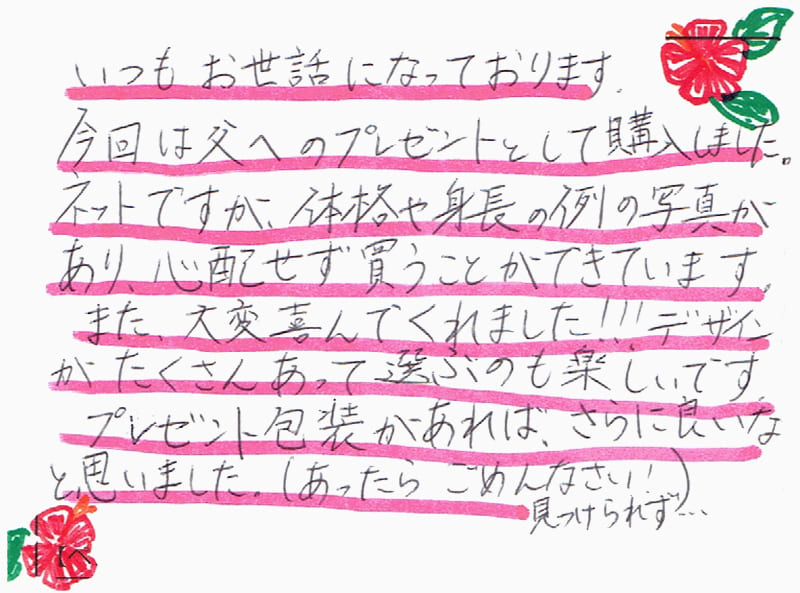 いつもお世話になっております。
今回は父へのプレゼントとして購入しました。
ネットですが、体格や身長の例の写真が
あり、心配せず買うことができています。
また、大変喜んでくれました!!!デザイン
がたくさんあって選ぶのも楽しいです。
プレゼント包装があれば、さらに良いな
と思いました。(あったらごめんなさい!)
見つけられず…